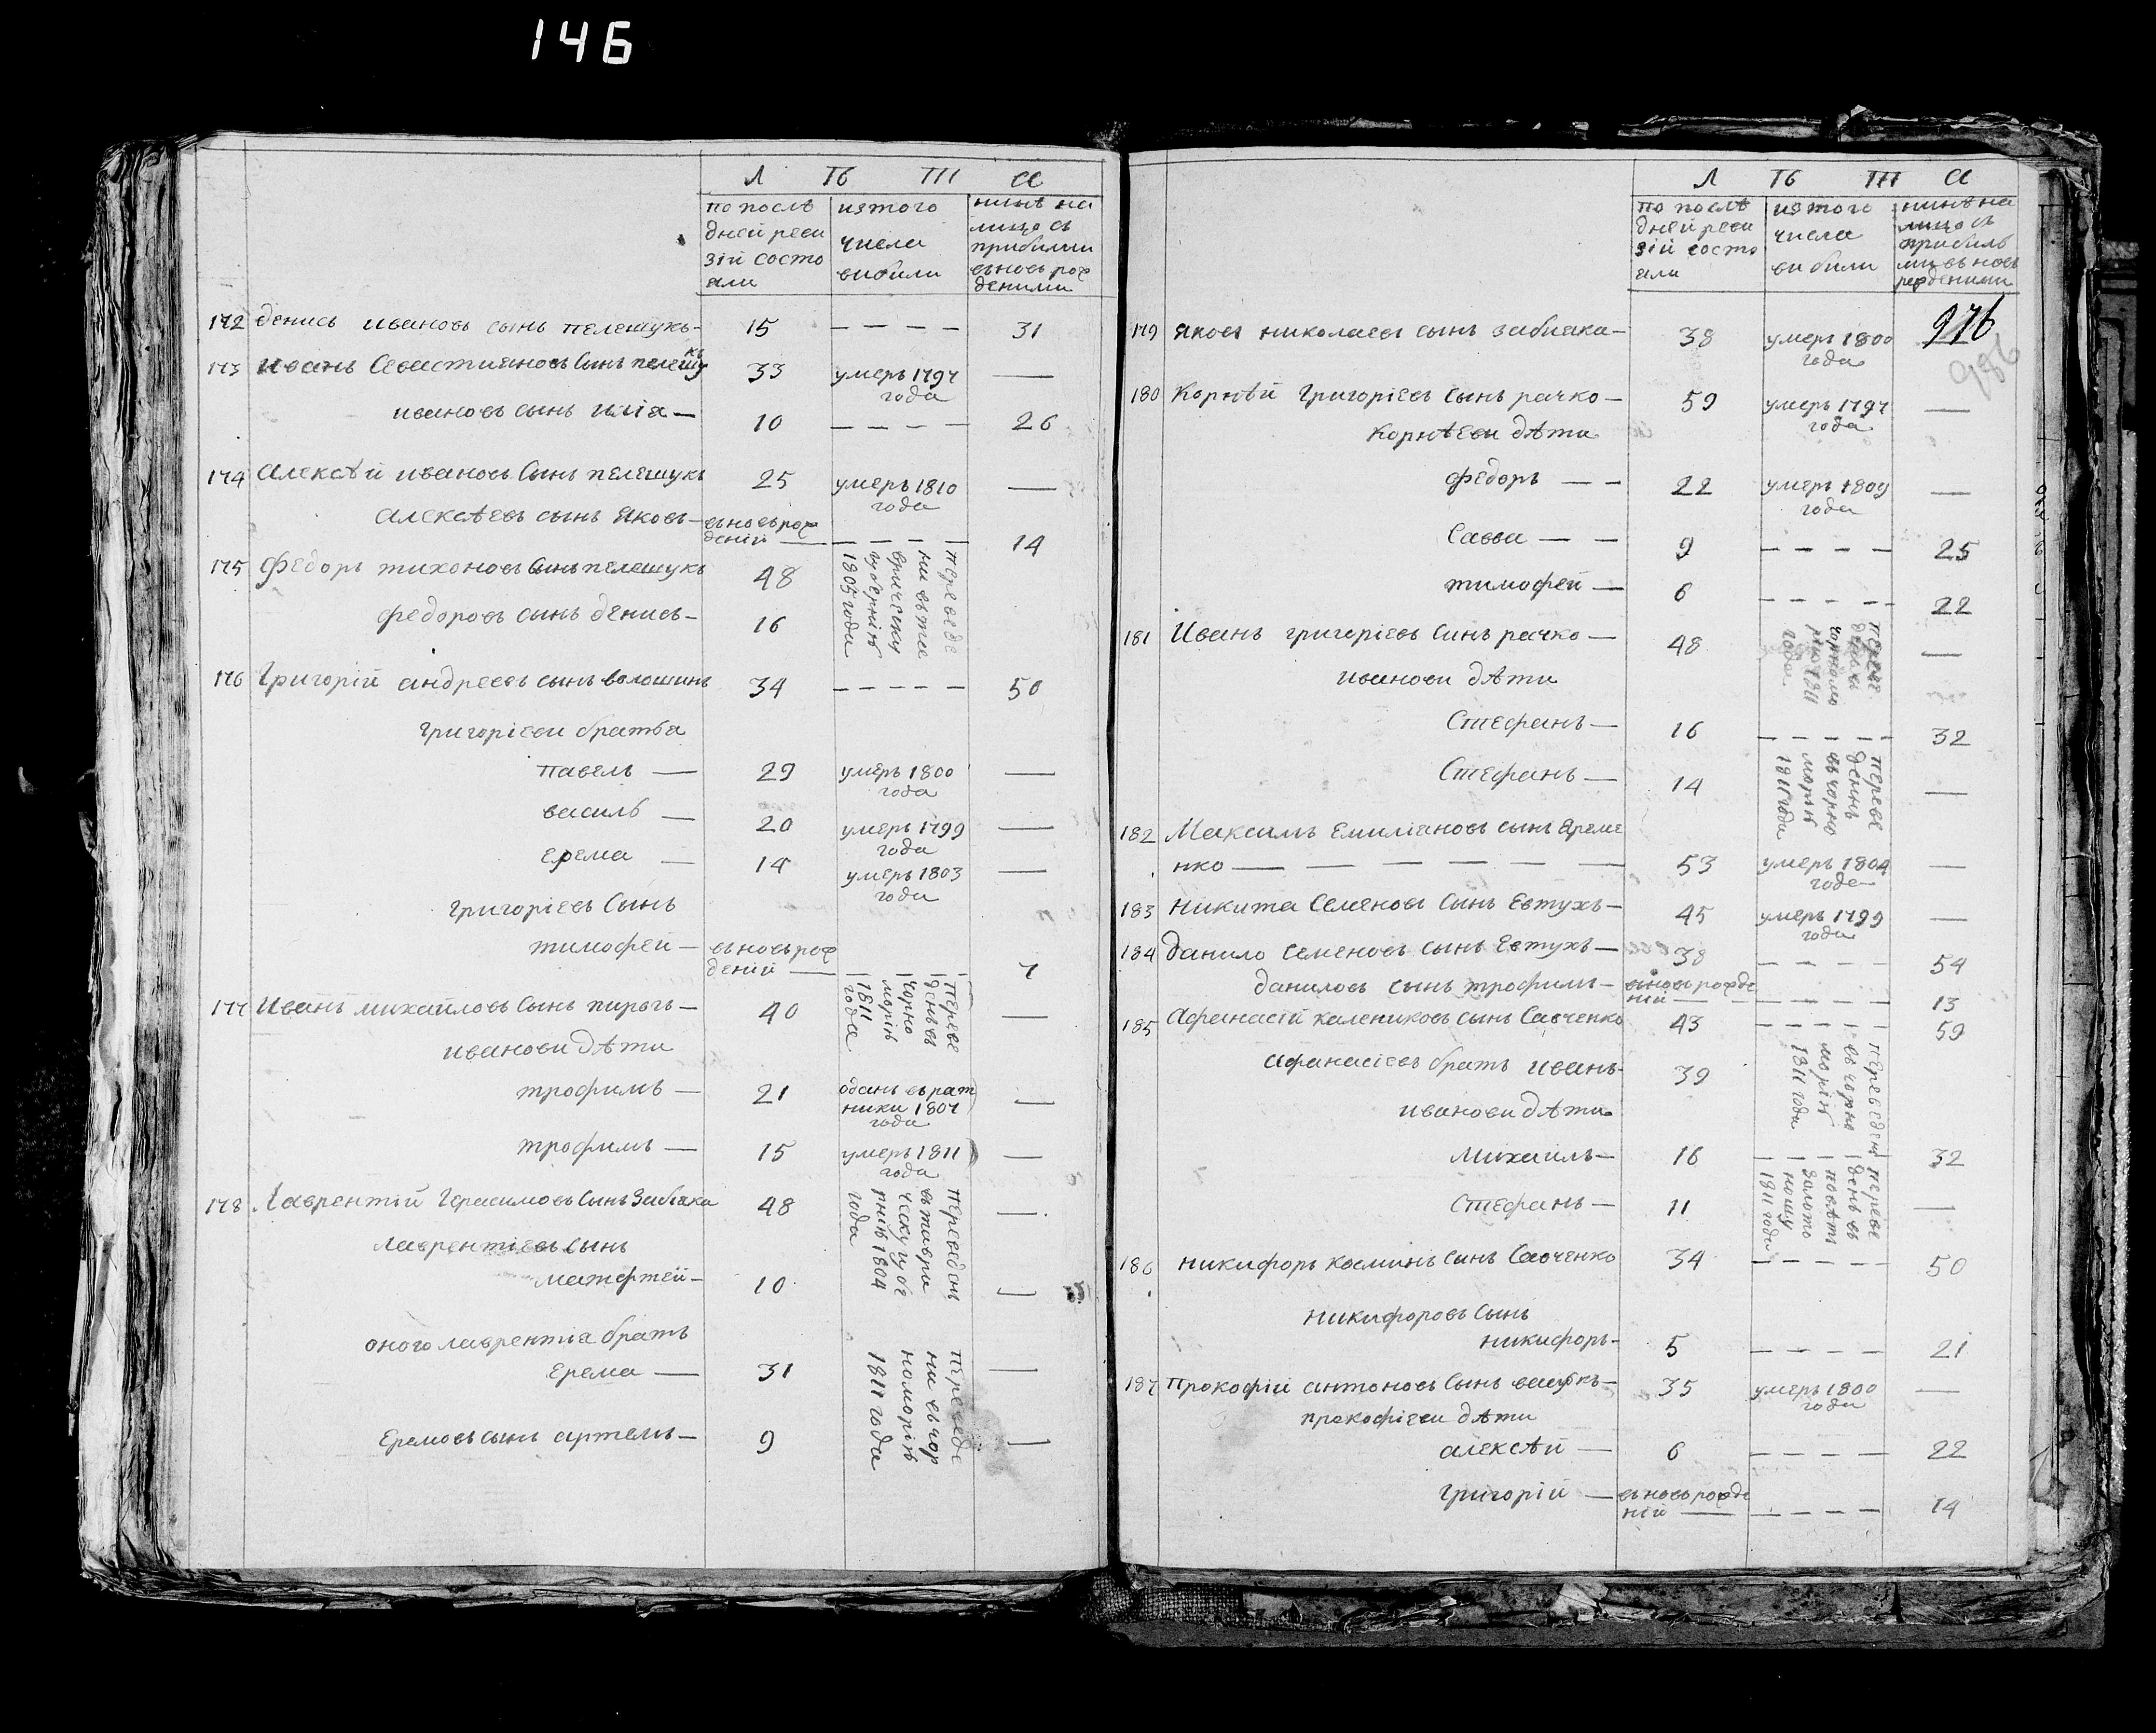 146
Л Ѣ Т А
по послѣ
дней реви
зій состо
яли
изтого
числа
вибили
нинѣ на
лицо съ
прибилими
вновь рож
деними
172 денись ивановъ сынъ пелешукъ — 15 — — — — 31
173 иванъ Севастияновъ Сынъ пелешукъ 33 умеръ 1797 —
года
ивановъ сынъ илія — 10 — — — — 26
174 алексѣй ивановъ Сынъ пелешукъ 25 умеръ 1810 —
года
алексѣевъ сынъ яковъ — вновьрож
деній — — — — — 14
175 Федоръ тихоновъ Сынъ пелешукъ 48
федоровъ сынъ денисъ — 16
переведе
ни въ та
врическу
губернію
1805 годи
176 Григорій андреевъ сынъ волошинъ 34 — — — — — 50
григоріеви братья
павелъ — 29 умеръ 1800 —
года
василь — 20 умеръ 1799 —
года
ерема — 14 умеръ 1803 —
года
григоріевъ Сынъ
тимофей — вновьрож
деній — — — — — 7
177 иванъ михайловъ Сынъ пирогъ — 40 —
переве
денъ въ
чорно
морію
1811
года
иванови дѣти
трофимъ — 21 обанъ въ рат —
ники 1807
года
трофимъ — 15 умеръ 1811 —
года
178 Лаврентій Герасимовъ Сынъ Забіяка 48 —
лаврентіевъ сынъ
матфтей — 10 —
переведон
въ тавра
ческу губе
рнію 1804
года
оного лаврентіа братъ
ерема — 31 —
еремовъ сынъ артемъ — 9 —
переведе
ни въ чор
номорію
1811 года
Л Ѣ Т А
по послѣ
дней реви
зій состо
яли
изтого
числа
вибили
нинѣ на
лицо съ
прибиль
ми вновь
рожденими
976
986
179 яковъ николаевъ сынъ забияка — 38 умеръ 1800
года
180 Корнѣй григоріевъ Сынъ рачко — 59 умеръ 1797 —
года
Корнѣеви дѣти
федоръ — — 22 умеръ 1809 —
года
Савва — — 9 — — — — 25
тимофей — 6 — — — — 22
181 Иванъ григоріевъ Синъ рачко — 48 —
иванови дѣти
Стефанъ — 16 — — — — — 32
Стефанъ — 14 —
переве
деннъ
въ чорно
морію
1811 годи
182 Максимъ емиліановъ сынъ яреме
нко — — — — — — 53 умеръ 1804 —
годе
183 никита Семеновъ Сынъ Евтухъ — 45 умеръ 1799 —
годи
184 данило Семеновъ сынъ Евтухъ — 38 — — — — 54
даниловъ сынъ трофимъ — вновьрожде
ній — — — — — 13
185 Афанасій калениковъ сынъ Савченко 43 — — — — 59
афанасіевъ братъ иванъ — 39
иванови дѣти
переведенъ
въ чорно
морію
1811 годи
михаилъ — 16 — — — — 32
Стефанъ — 11 —
переве
денъ въ
повѣтъ
золото
ношу
1811 годи
186 никифоръ косминъ синъ Савченко 34 — — — — — 50
никифоровъ Сынъ
никифоръ — 5 — — — — 21
187 прокофій антоновъ Сынъ — 35 умеръ 1800 —
годи
прокофіеви дѣти
алексѣй — 6 — — — — 22
григорій — вновьрожде
ній — — — — — 14